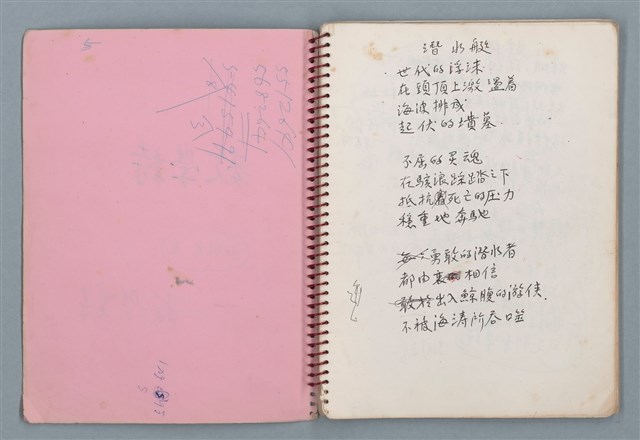 潛水艇
世代的浮沫
在頭頂上激盪着
海波排成
起伏的墳墓
不屈的灵魂
在駭浪踩踏之下
抵抗死亡的压力
穩重地奔馳
勇敢的潛水者
都由衷相信
敢於出入鯨腹的游侠.
不被海涛所吞噬